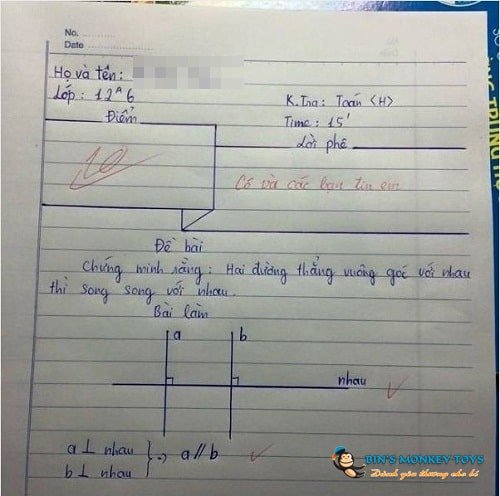 No. ............
Date ............
Họ và tên:
Lớp: 12ᴬ6
K.Tra: Toán <H>
Điểm
Time: 15'
Lời phê
10
Cô và các bạn tin em
Đề bài
Chứng minh rằng: Hai đường thẳng vuông góc với nhau
thì song song với nhau.
Bài làm
a
b
nhau
a ⊥ nhau
b ⊥ nhau
} => a // b
BIN'S MONKEY TOYS
Dành yêu thương cho bé